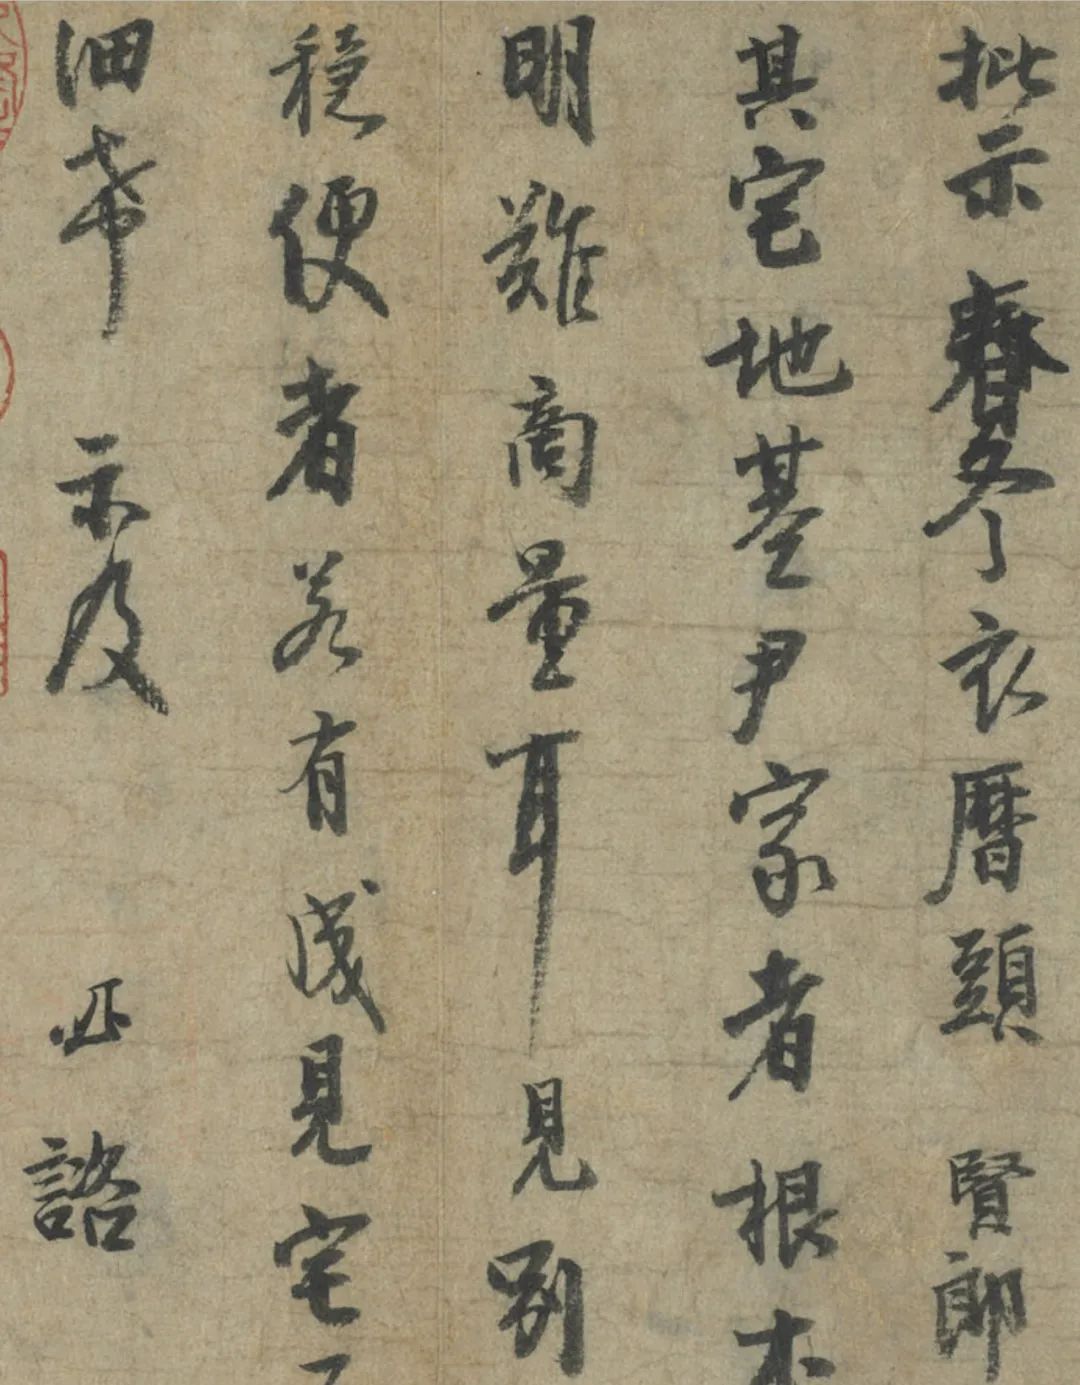 批示春冬衣曆頭賢郎
其宅地基尹家者根本
明難商量耳見別
穩便者若有成見宅子
細希示及必諮